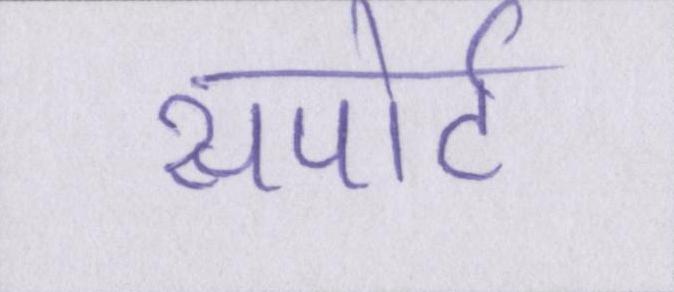 सपोर्ट